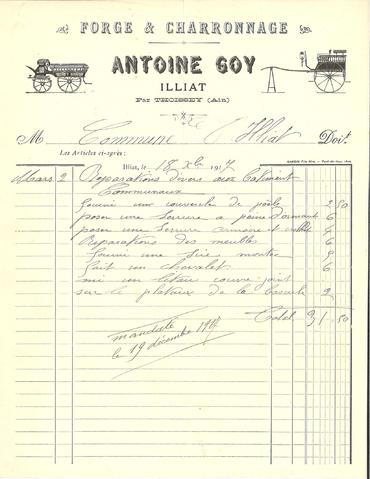 FORGE & CHARRONNAGE
ANTOINE GOY
ILLIAT
Par THOISSEY (Ain)
M Commune d'Illiat Doit
Les Articles ci-après :
Illiat, le 18 Xbre 1917
Mars 2 Reparations divers aux batiment
Communaux
fourni une couvercle de poêle 2 50
poser une serrure a pêne dormant 6
poser une serrure armoire et 4
Reparations des meubles 6
fourni une
fait un chevalet 6
mi un couvre joint
sur le plateau de la bascule 2
Total 31.50
mandaté
le 19 décembre 1917